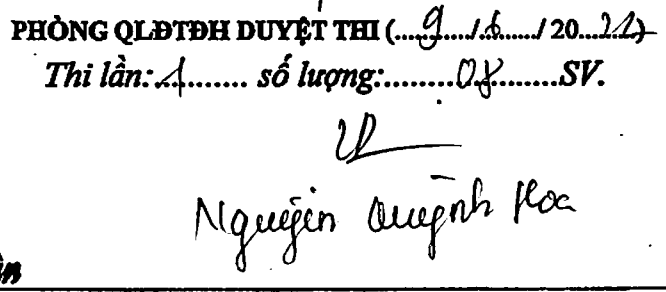 PHÒNG QLĐTĐH DUYỆT THI (....9..../.6....../ 20...22)
Thi lần:.1........ số lượng:.........08.........SV.
Nguyễn Quỳnh Hoa